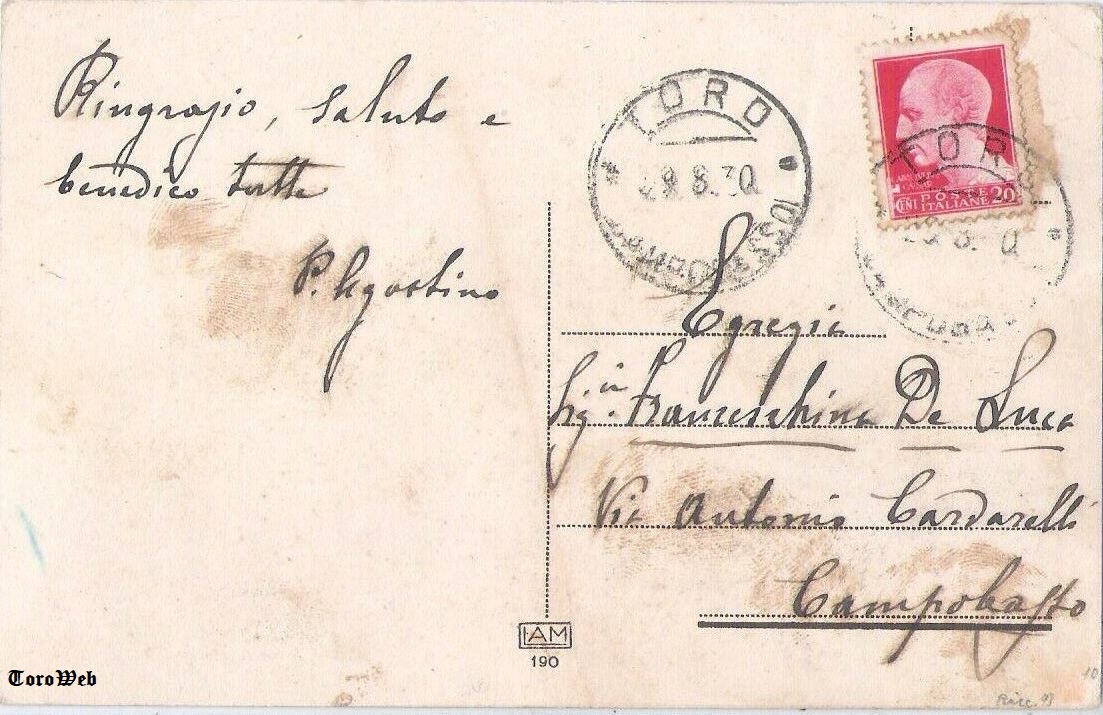 Ringrazio, saluto e
benedico tutte
P. Agostino
TORO
8.30
CAMPOBASSO
TORO
CENT 20
POSTE
ITALIANE
Egregia
Sig.in Franceschina De Luca
Via Antonio Cardarelli
Campobasso
I.A.M
190
ToroWeb